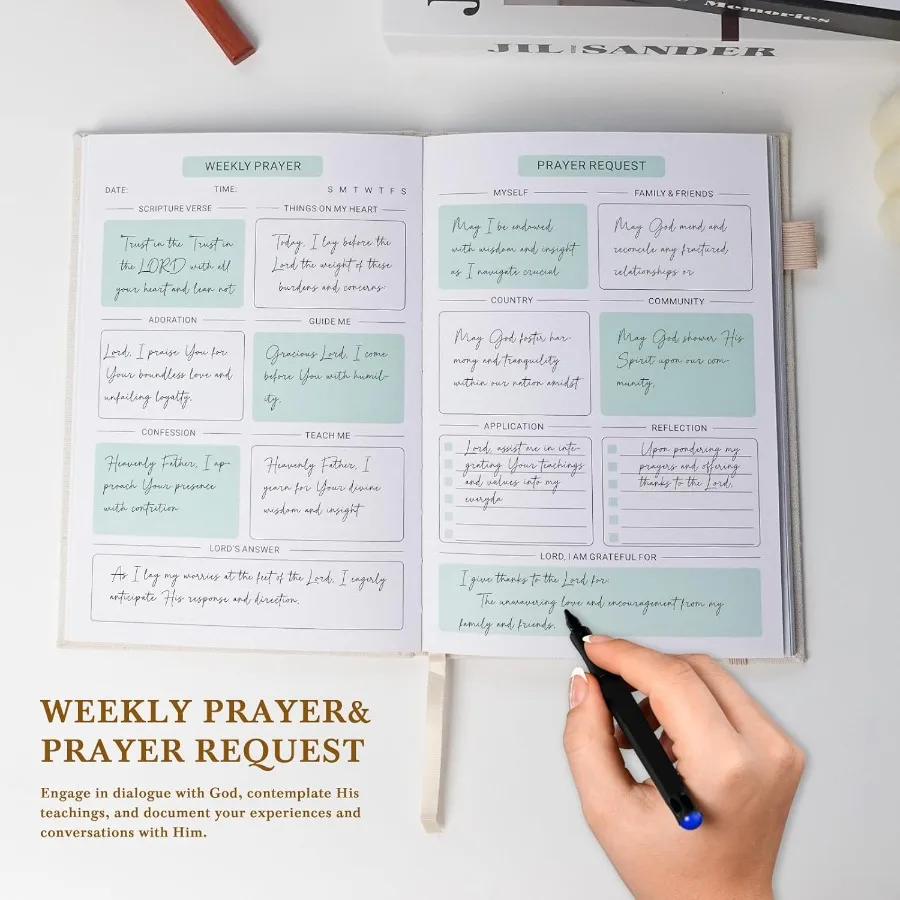 Memories
JIL SANDER
WEEKLY PRAYER
DATE: TIME: S M T W T F S
SCRIPTURE VERSE
Trust in the Trust in
the LORD with all
your heart and lean not
THINGS ON MY HEART
Today, I lay before the
Lord the weight of these
burdens and concerns:
ADORATION
Lord, I praise You for
Your boundless love and
unfailing loyalty.
GUIDE ME
Gracious Lord, I come
before You with humil-
ity.
CONFESSION
Heavenly Father, I ap-
proach Your presence
with contrition
TEACH ME
Heavenly Father, I
yearn for Your divine
wisdom and insight
LORD'S ANSWER
As I lay my worries at the feet of the Lord, I eagerly
anticipate His response and direction.
PRAYER REQUEST
MYSELF
May I be endowed
with wisdom and insight
as I navigate crucial
FAMILY & FRIENDS
May God mend and
reconcile any fractured,
relationships or
COUNTRY
May God foster har-
mony and tranquility
within our nation amidst
COMMUNITY
May God shower His
Spirit upon our com-
munity,
APPLICATION
Lord, assist me in inte-
grating Your teachings
and values into my
everyda
REFLECTION
Upon pondering my
prayers and offering
thanks to the Lord,
LORD, I AM GRATEFUL FOR
I give thanks to the Lord for:
The unwavering love and encouragement from my
family and friends.
WEEKLY PRAYER&
PRAYER REQUEST
Engage in dialogue with God, contemplate His
teachings, and document your experiences and
conversations with Him.